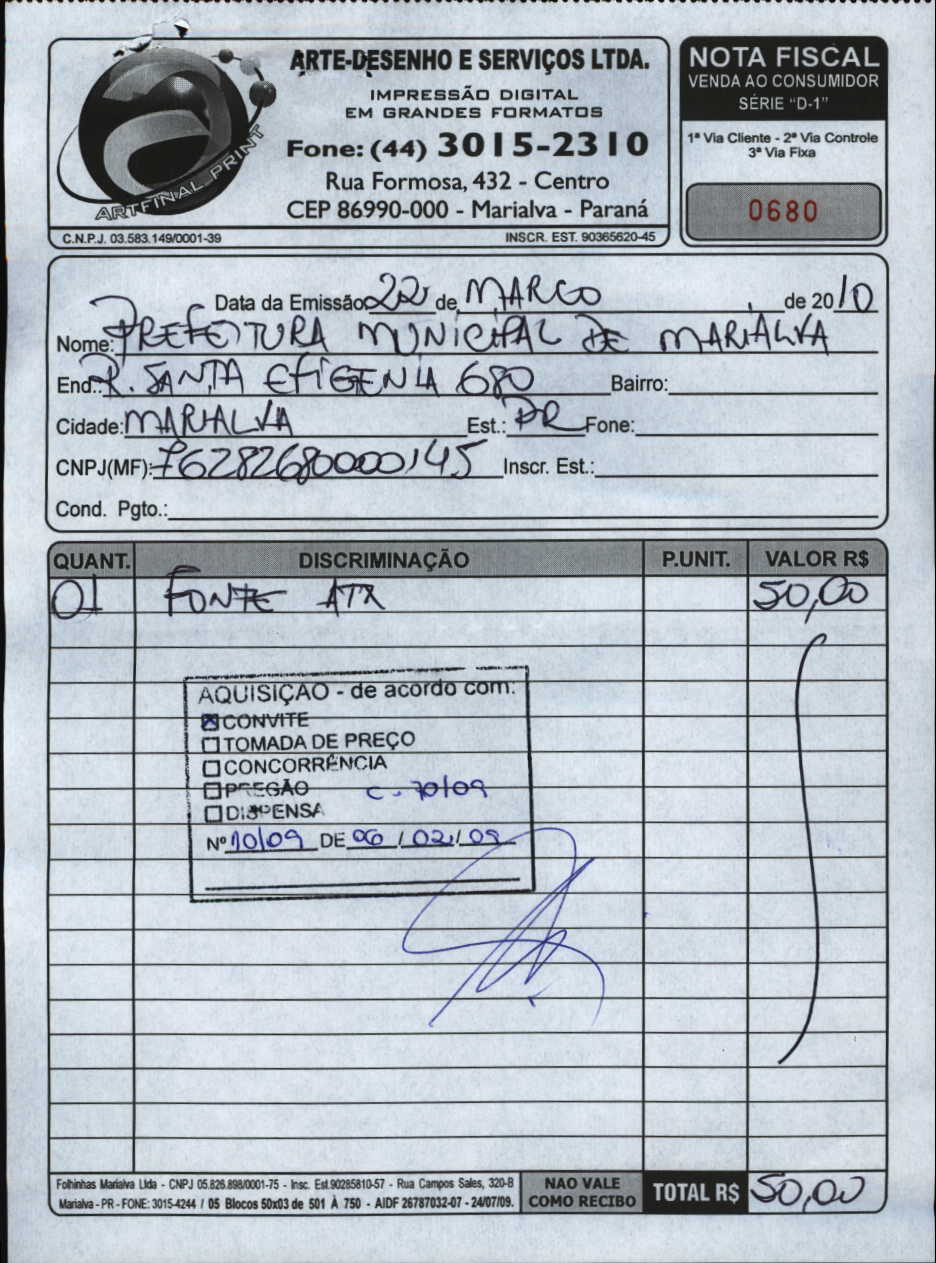 ARTE-DESENHO E SERVIÇOS LTDA.
IMPRESSÃO DIGITAL
EM GRANDES FORMATOS
Fone: (44) 3015-2310
Rua Formosa, 432 - Centro
CEP 86990-000 - Marialva - Paraná
ARTFINAL PRINT
C.N.P.J. 03.583.149/0001-39 INSCR. EST. 90365620-45
NOTA FISCAL
VENDA AO CONSUMIDOR
SÉRIE "D-1"
1ª Via Cliente - 2ª Via Controle
3ª Via Fixa
0680
Data da Emissão 22 de MARCO de 2010
Nome: PREFEITURA MUNICIPAL DE MARIALVA
End.: R. SANTA EFIGENIA 680 Bairro:
Cidade: MARIALVA Est.: PR Fone:
CNPJ(MF): 76282680000145 Inscr. Est.:
Cond. Pgto.:
QUANT. DISCRIMINAÇÃO P.UNIT. VALOR R$
01 FONTE ATX 50,00
AQUISIÇÃO - de acordo com:
CONVITE
TOMADA DE PREÇO
CONCORRÊNCIA
PREGÃO C - 10/09
DISPENSA
Nº 10/09 DE 06 / 02 / 09
Folhinhas Marialva Ltda - CNPJ 05.826.898/0001-75 - Insc. Est.90285810-57 - Rua Campos Sales, 320-B
Marialva - PR - FONE: 3015-4244 / 05 Blocos 50x03 de 501 À 750 - AIDF 26787032-07 - 24/07/09.
NAO VALE
COMO RECIBO
TOTAL R$ 50,00